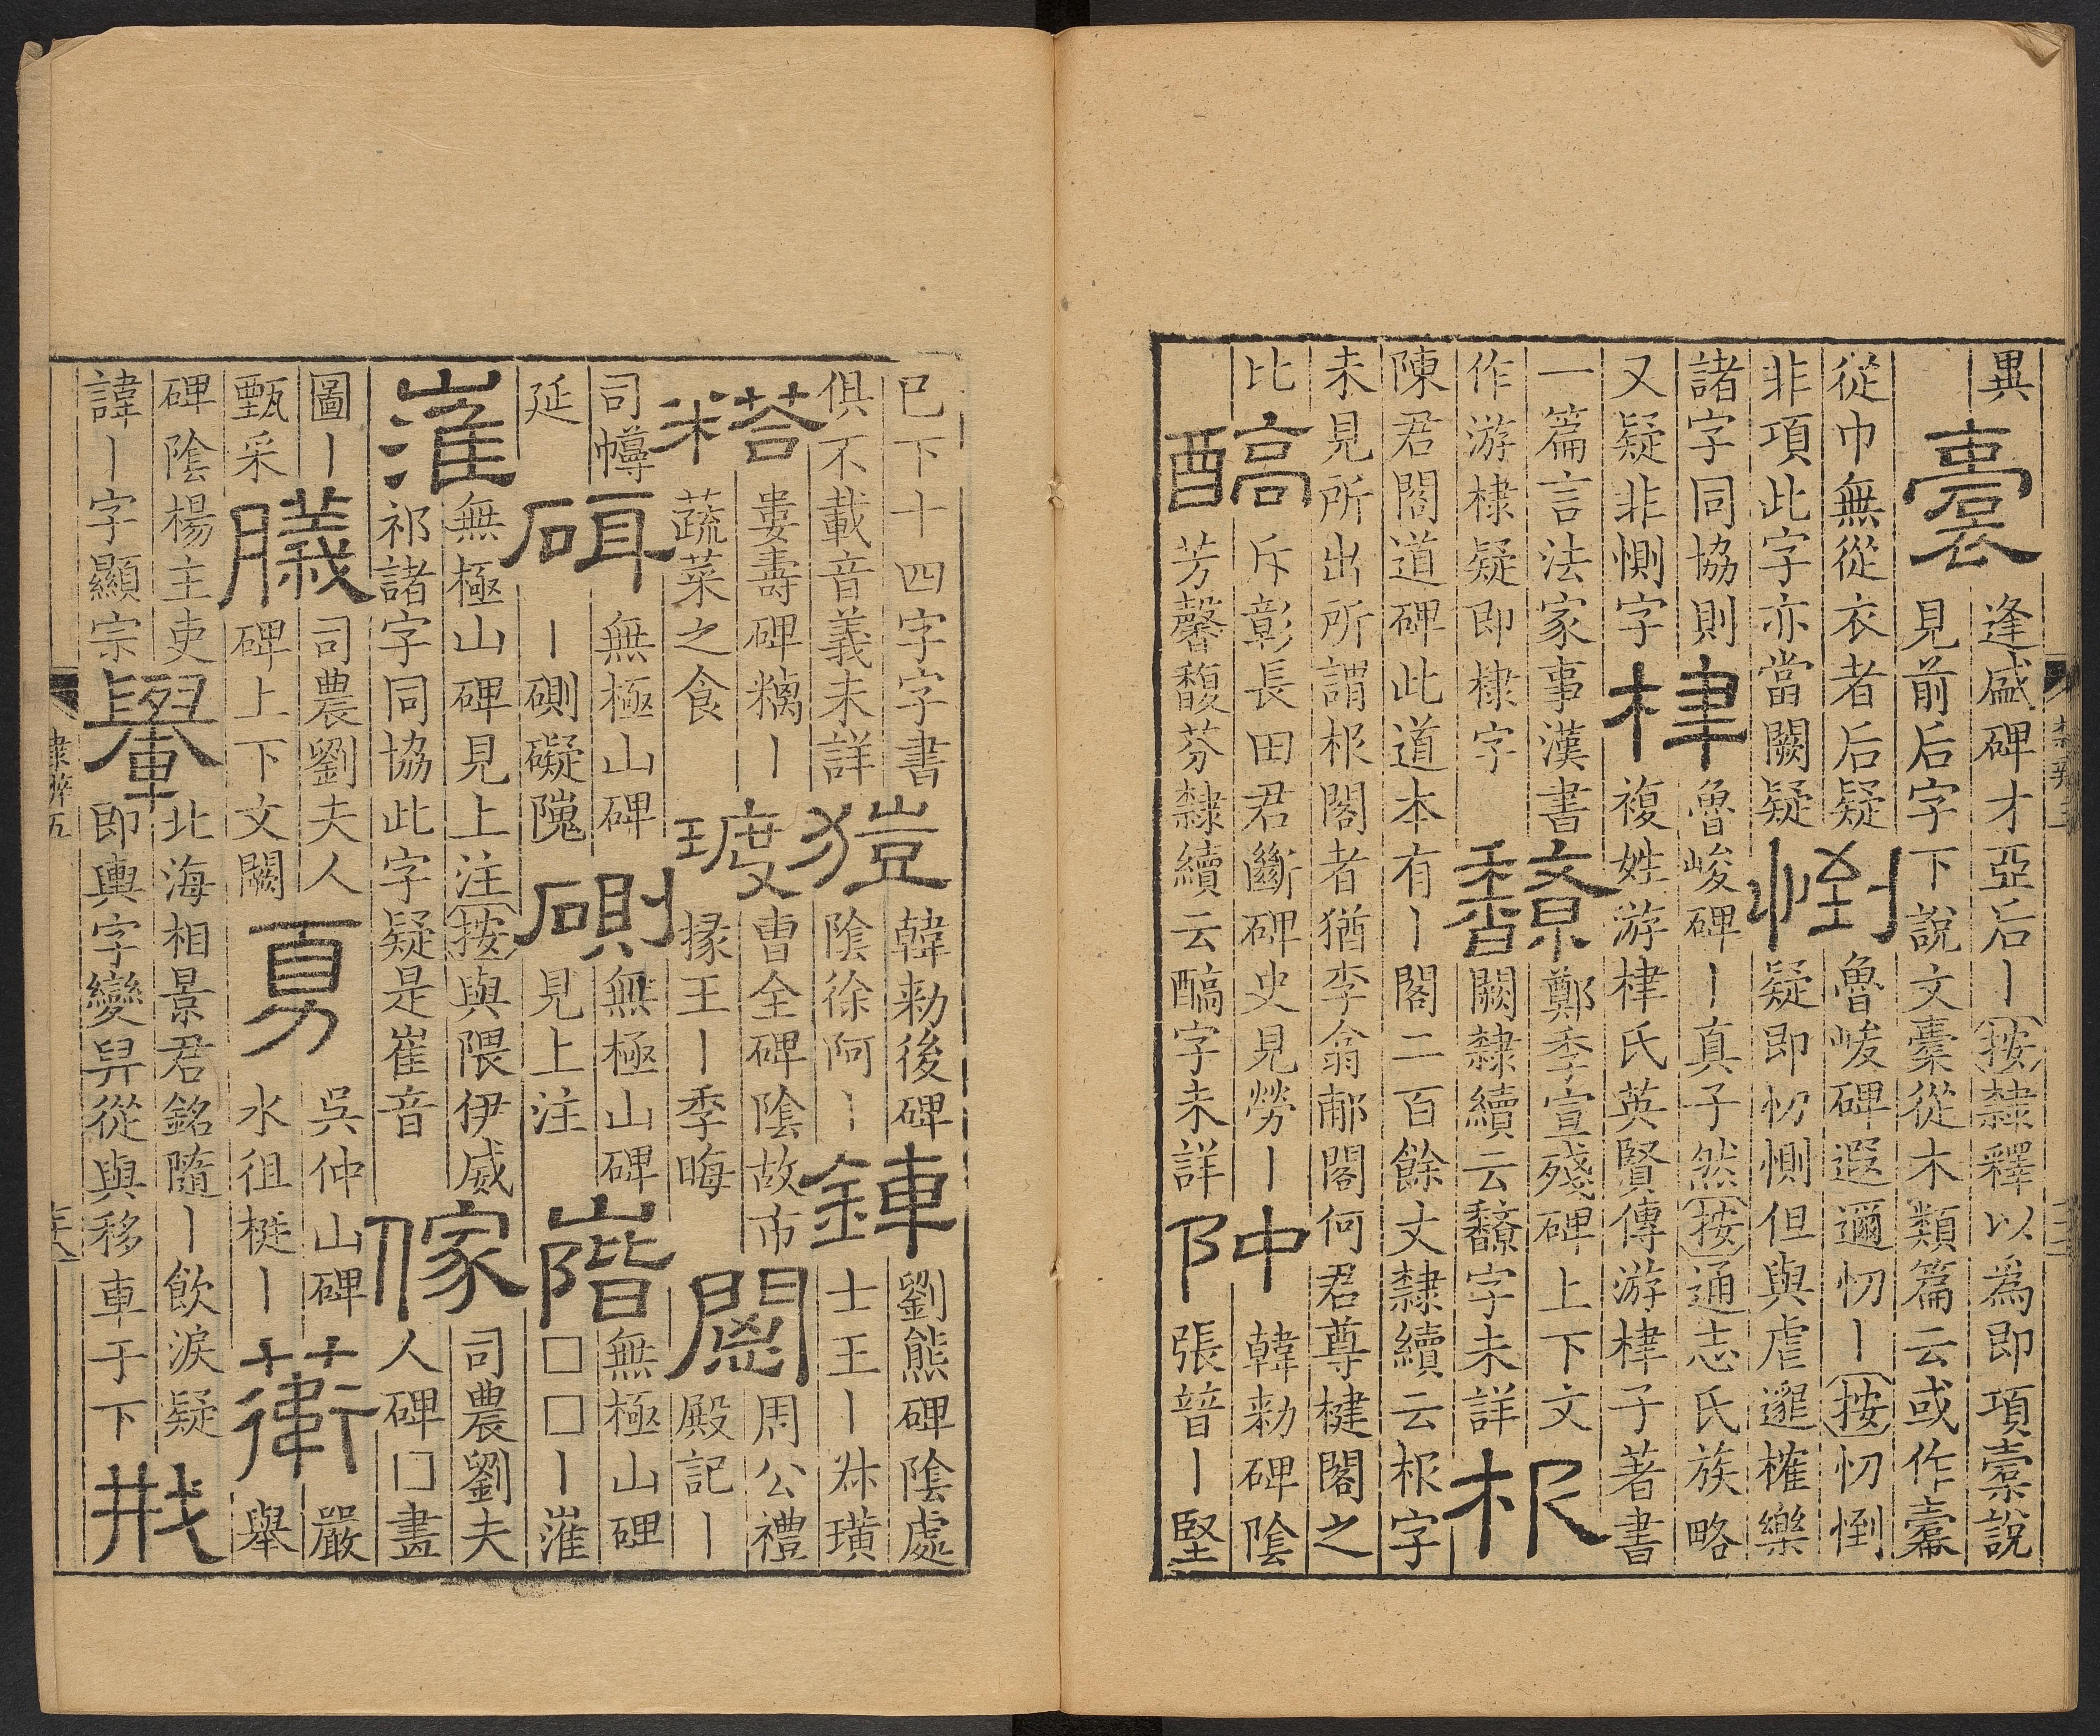 異
逢盛碑才亞后丨按隸釋以為即項橐說
見前后字下說文橐從木類篇云或作
從巾無從衣者后疑
非項此字亦當闕疑
魯峻碑遐邇忉丨按忉倒
疑即忉惻但與虐遯㩁樂
諸字同協則
又疑非惻字
魯峻碑丨真子然按通志氏族略
複姓游氏英賢傳游子著書
一篇言法家事漢書
作游棣疑即棣字
鄭季宣殘碑上下文
闕隸續云字未詳
根
陳君閣道碑此道本有丨閣二百餘丈隸續云根字
未見所出所謂根閣者猶李翁郙閣何君尊楗閣之
比
䤒
斥彰長田君斷碑史見勞丨
芳馨馥芬隸續云䤒字未詳
韓勑碑陰
張丨堅
隸辨五
已下十四字字書
俱不載音義未詳
韓勑後碑
陰徐阿丨
鍕
劉熊碑陰處
士王丨牀璜
婁壽碑糲丨
蔬菜之食
曹全碑陰故市
掾王丨季晦
周公禮
殿記丨
司
延
無極山碑
丨礙隗
無極山碑
見上注
無極山碑
□□丨漼
漼
無極山碑見上注按與隈伊威
祁諸字同協此字疑是崔音
傢
司農劉夫
人碑□盡
圖丨
甄采
司農劉夫人
碑上下文闕
吳仲山碑
水徂梃丨
嚴
舉
碑陰楊主吏
諱丨字顯宗
轝
北海相景君銘隨丨飲淚疑
即輿字變舁從與移車于下
隸辨五